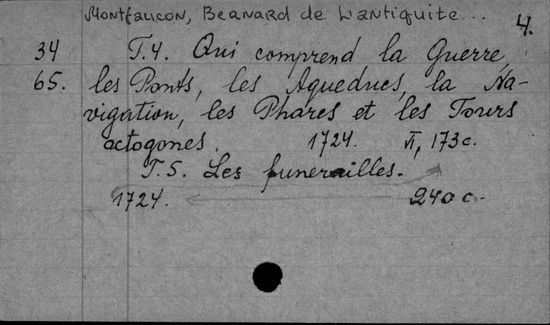 Montfaucon, Bernard de L'antiquite... 4.
34 T.4. Qui comprend la Guerre,
65. les Ponts, les Aqueducs, la Na-
vigation, les Phares et les Tours
octogones. 1724. VI, 173 c.
T.5. Les funerailles.
1724. 240 c.